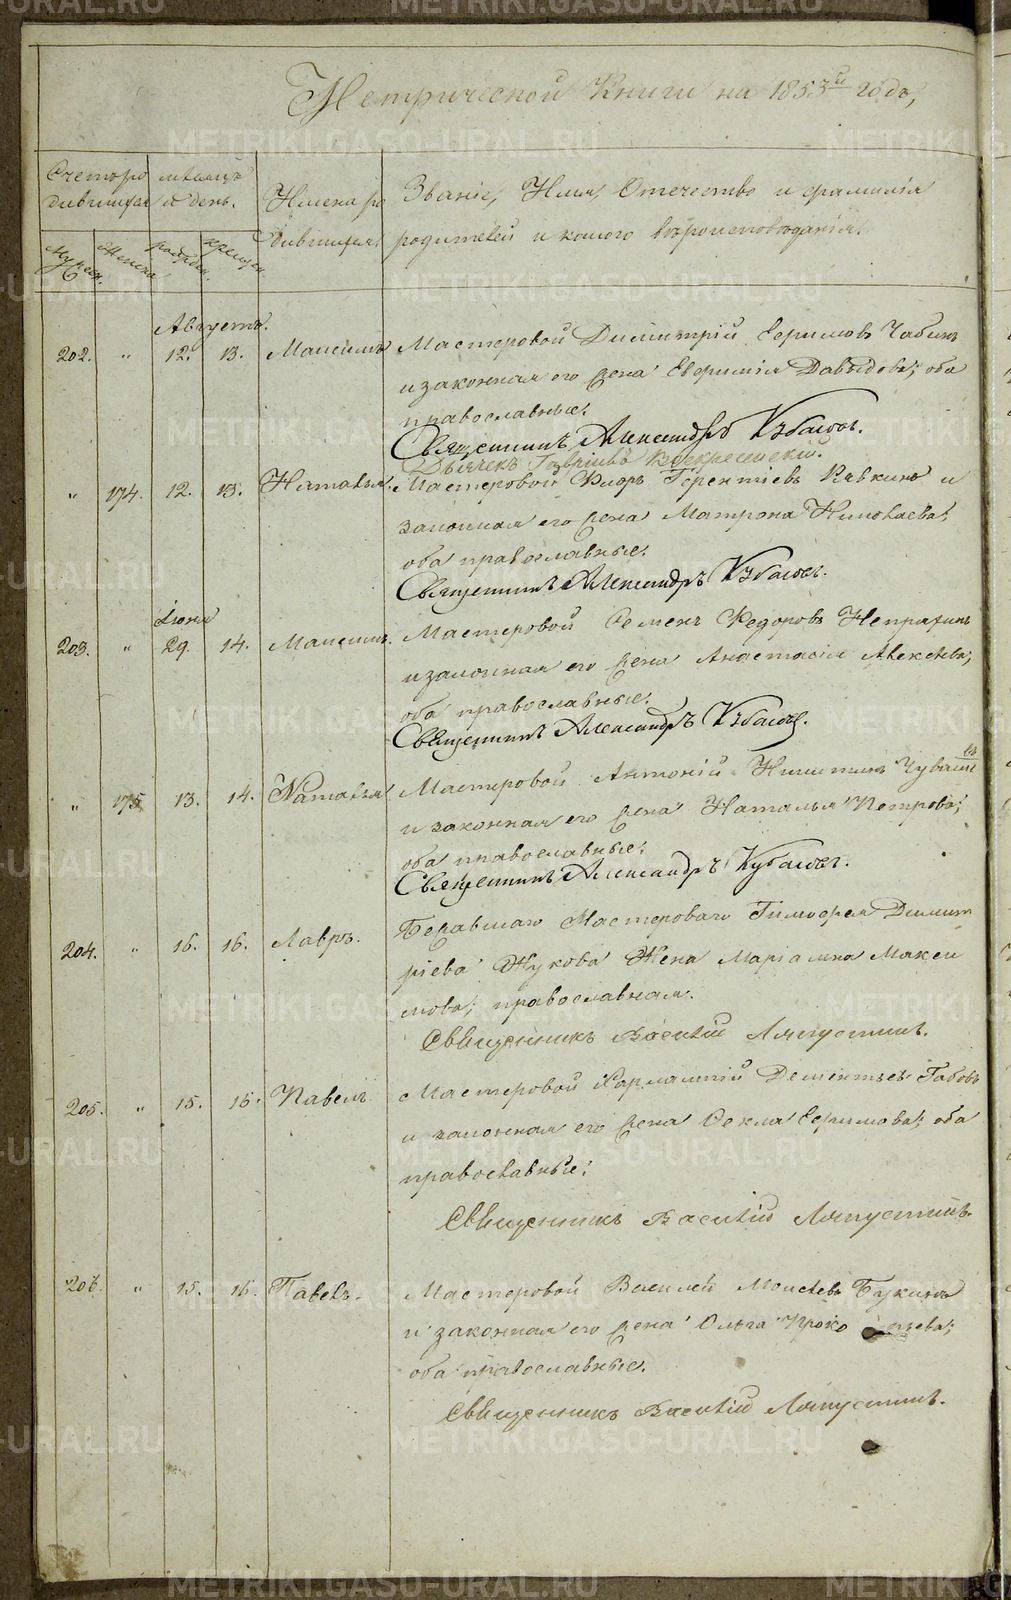 Метрической Книги на 1853й годъ,
Счетъ ро
дившихся
мѣсяцъ
и день.
Имена ро
дившихся.
Званіе, Имя, Отечество и фамилія
родителей и какого вѣроисповѣданія.
Мужеск.
Женска
рожден.
крещен.
Августъ.
202. " 12. 13. Максимъ Мастеровой Димитрій Ефимовъ Чабинъ
и законная его жена Евфимія Давыдова; оба
православные.
Священникъ Александръ Кубасовъ.
Дьячекъ Гавріилъ Воскресенскій.
" 174. 12. 13. Наталья. Мастеровой Флоръ Терентіевъ Кавкинъ и
законная его жена Матрона Николаева;
оба православные.
Священникъ Александръ Кубасовъ.
Іюня
203. " 29. 14. Максимъ. Мастеровой Семенъ Федоровъ Непряхинъ
и законная его жена Анастасія Алексѣева;
оба православные.
Священникъ Александръ Кубасовъ.
" 175 13. 14. Наталья Мастеровой Антоній Никитинъ Чуваш
евъ
и законная его жена Наталья Петрова;
оба православные.
Священникъ Александръ Кубасовъ.
204. " 16. 16. Лавръ. Мастероваго Тимофея Димит
ріева Жукова Жена Маріамна Макси
мова; православная.
Священникъ Василій Ляпустинъ.
205. " 15. 16. Павелъ Мастеровой Харлампій Дементьевъ Габовъ
и законная его жена Фекла Ефимова; оба
православные.
Священникъ Василій Ляпустинъ.
206. " 15. 16. Павелъ. Мастеровой Василей Моисѣевъ Букинъ
и законная его жена Ольга Проко пьева;
оба православные.
Священникъ Василій Ляпустинъ.
METRIKI.GASO-URAL.RU